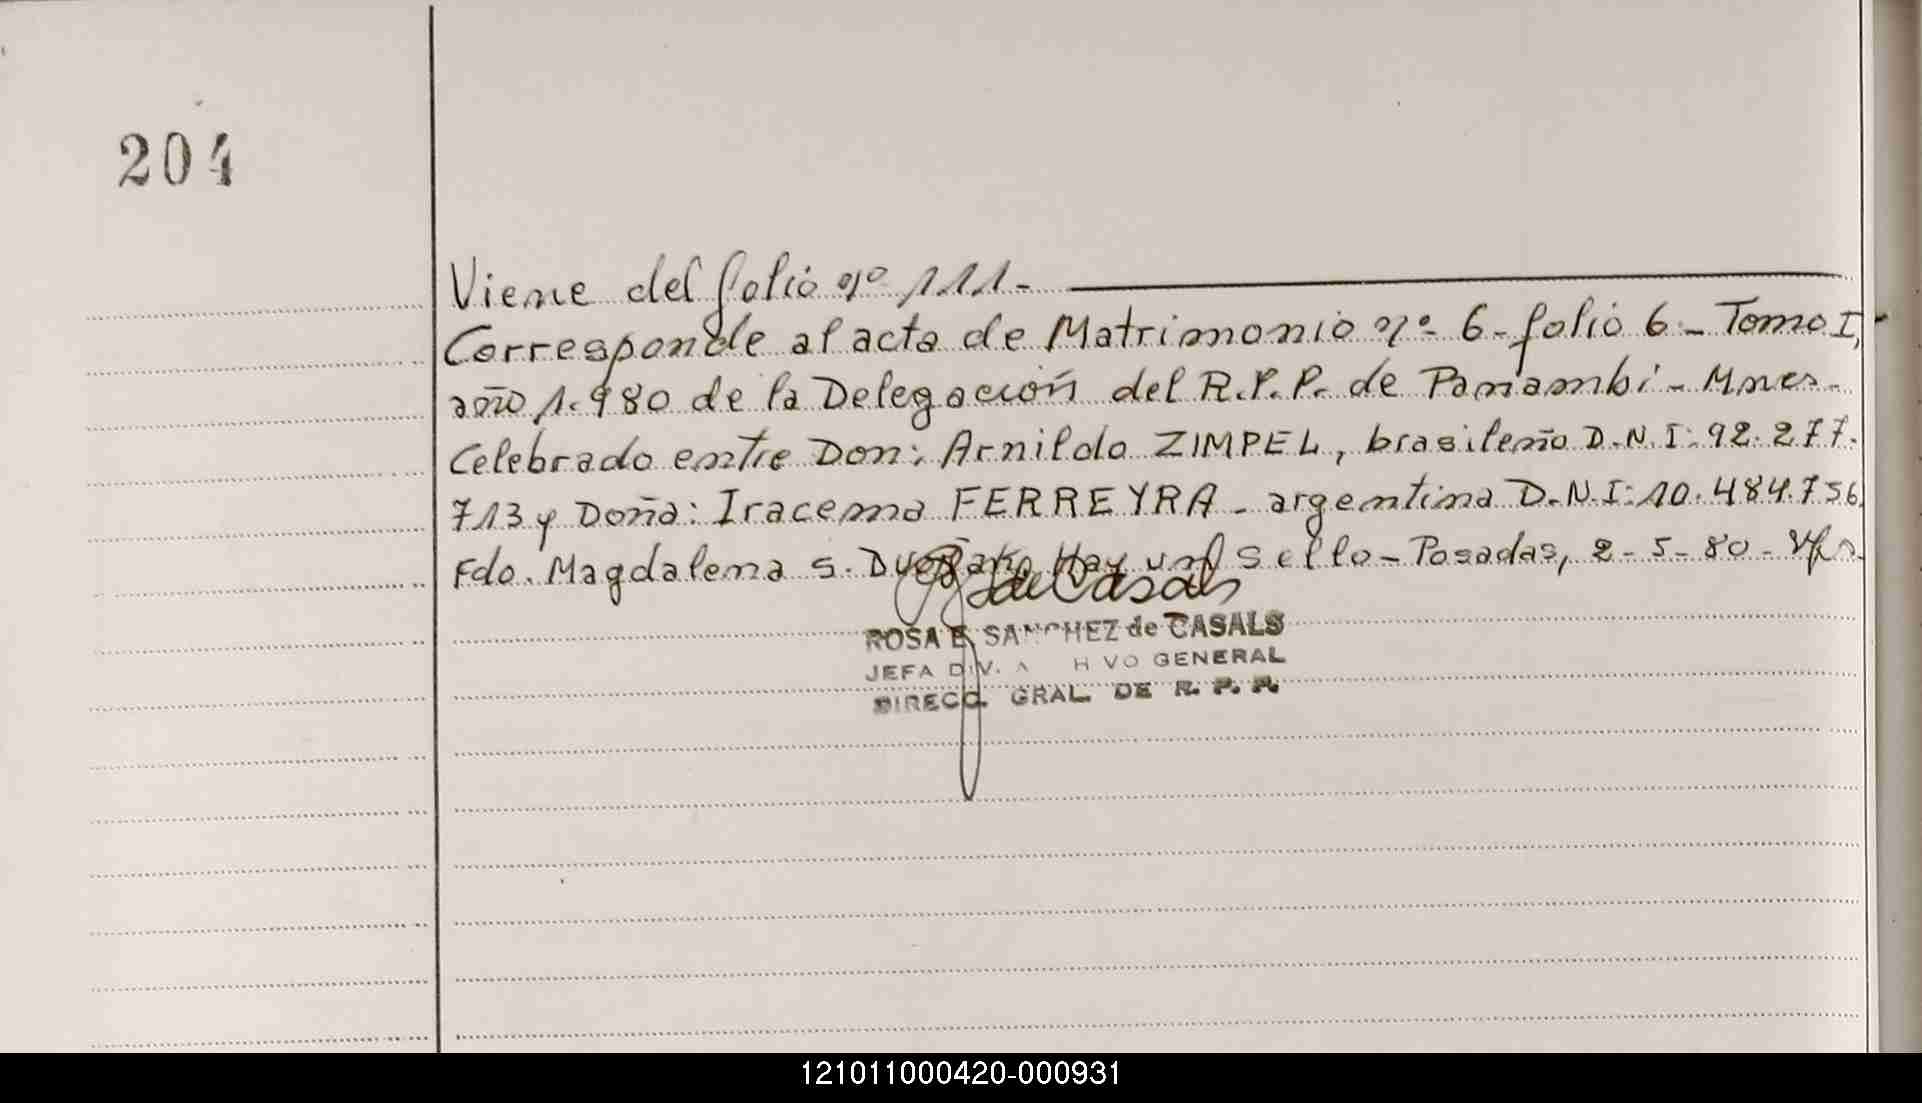 204
Viene del folio nº 111.-
Corresponde al acta de Matrimonio nº 6- folio 6- Tomo I,-
año 1.980 de la Delegación del R.P.P. de Panambi- Mnes-
Celebrado entre Don: Arnildo ZIMPEL, brasileño D.N.I: 92.277.
713 y Doña: Iracema FERREYRA- argentina D.N.I: 10.484.756.
Fdo. Magdalena S. Hay un sello- Posadas, 2-5-80-
de Casals
ROSA E. SANCHEZ de CASALS
JEFA DIV. ARCHIVO GENERAL
DIRECC. GRAL. DE R. P. P.
121011000420-000931